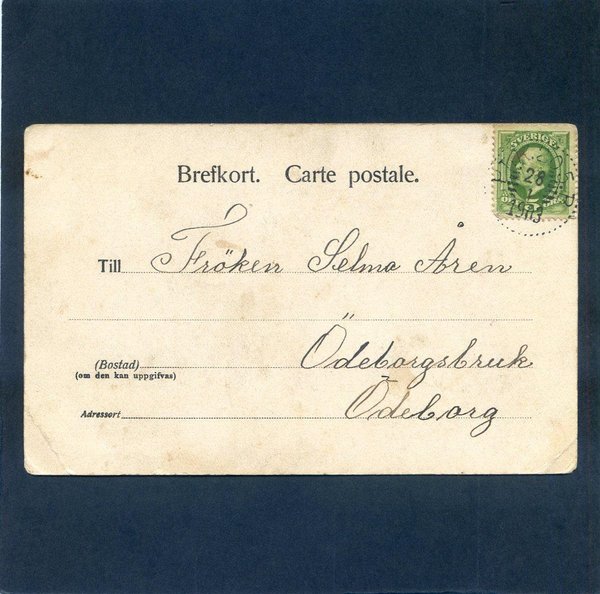 Brefkort. Carte postale.
SVERIGE
28
1903
Till Fröken Selma Åren
(Bostad) Ödeborgsbruk
(om den kan uppgifvas)
Adressort Ödeborg